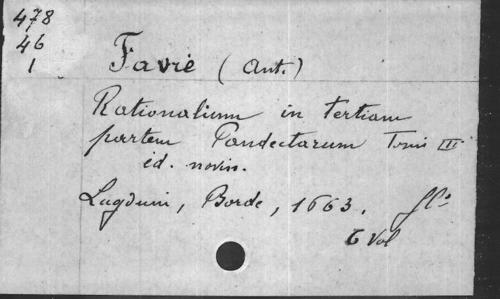 478
46
1
Favre (Ant.)
Rationalium in tertiam
partem Pandectarum Tomi III
ed. noviss.
Lugduni, Borde, 1663. flo
6 Vol